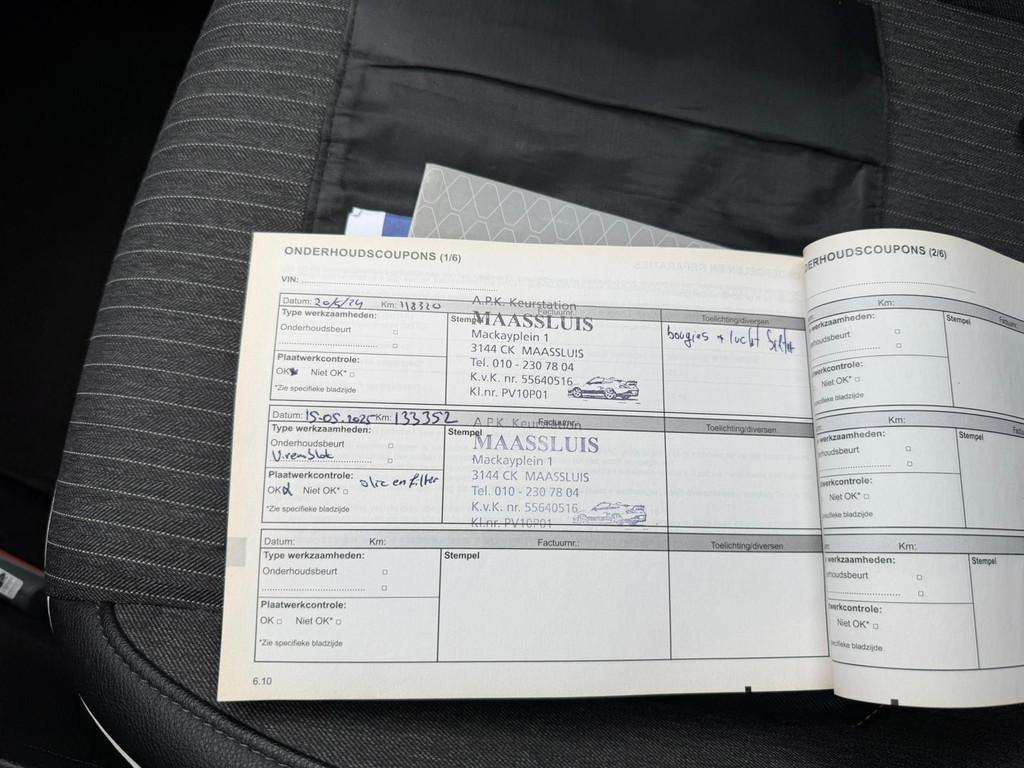 ONDERHOUDSCOUPONS (1/6)
VIN:
Datum: 20/5/24 Km: 118320 Factuurnr.: Toelichting/diversen
Type werkzaamheden:
Onderhoudsbeurt
Plaatwerkcontrole:
OK Niet OK*
*Zie specifieke bladzijde
Stempel
A.P.K. Keurstation
MAASSLUIS
Mackayplein 1
3144 CK MAASSLUIS
Tel. 010 - 230 78 04
K.v.K. nr. 55640516
Kl.nr. PV10P01
bougies + lucht filter
Datum: 15-05-2025 Km: 133352 Factuurnr.: Toelichting/diversen
Type werkzaamheden:
Onderhoudsbeurt
V.remblok
Plaatwerkcontrole:
olie en filter
OK Niet OK*
*Zie specifieke bladzijde
Stempel
A.P.K. Keurstation
MAASSLUIS
Mackayplein 1
3144 CK MAASSLUIS
Tel. 010 - 230 78 04
K.v.K. nr. 55640516
Kl.nr. PV10P01
Datum: Km: Factuurnr.: Toelichting/diversen
Type werkzaamheden:
Onderhoudsbeurt
Plaatwerkcontrole:
OK Niet OK*
*Zie specifieke bladzijde
Stempel
6.10
DERHOUDSCOUPONS (2/6)
Km: Factuurn
werkzaamheden:
rhoudsbeurt
werkcontrole:
Niet OK*
ecifieke bladzijde
Stempel
Km: Factu
werkzaamheden:
houdsbeurt
werkcontrole:
Niet OK*
ecifieke bladzijde
Stempel
Km:
werkzaamheden:
rhoudsbeurt
werkcontrole:
Niet OK*
specifieke bladzijde
Stempel